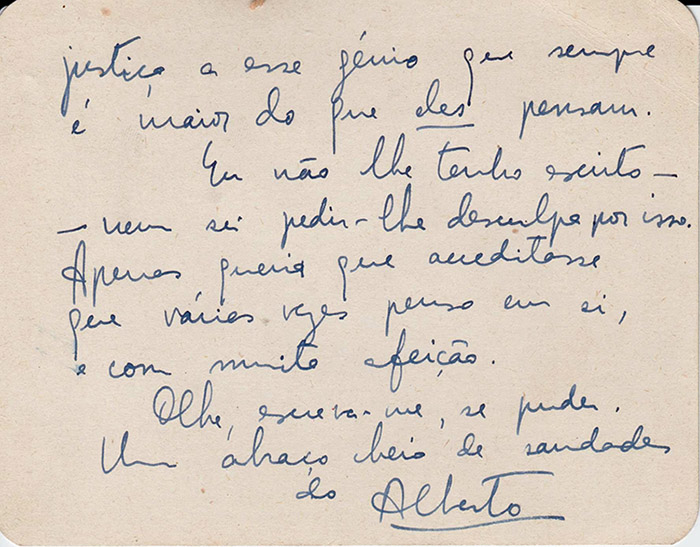 justiça a esse génio que sempre
é maior do que eles pensam.
Eu não lhe tenho escrito —
— nem sei pedir-lhe desculpa por isso.
Apenas queria que acreditasse
que várias vezes penso em si,
e com muita afeição.
Olhe, escreva-me, se puder.
Um abraço cheio de saudades
do Alberto